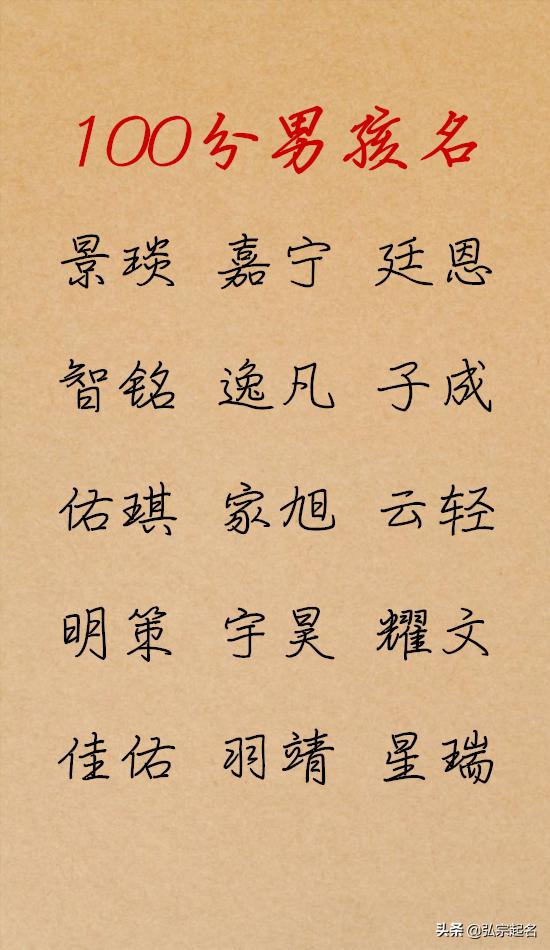 100分男孩名
景琰 嘉宁 廷恩
智铭 逸凡 子成
佑琪 家旭 云轻
明策 宇昊 耀文
佳佑 羽靖 星瑞
头条 @弘宗起名